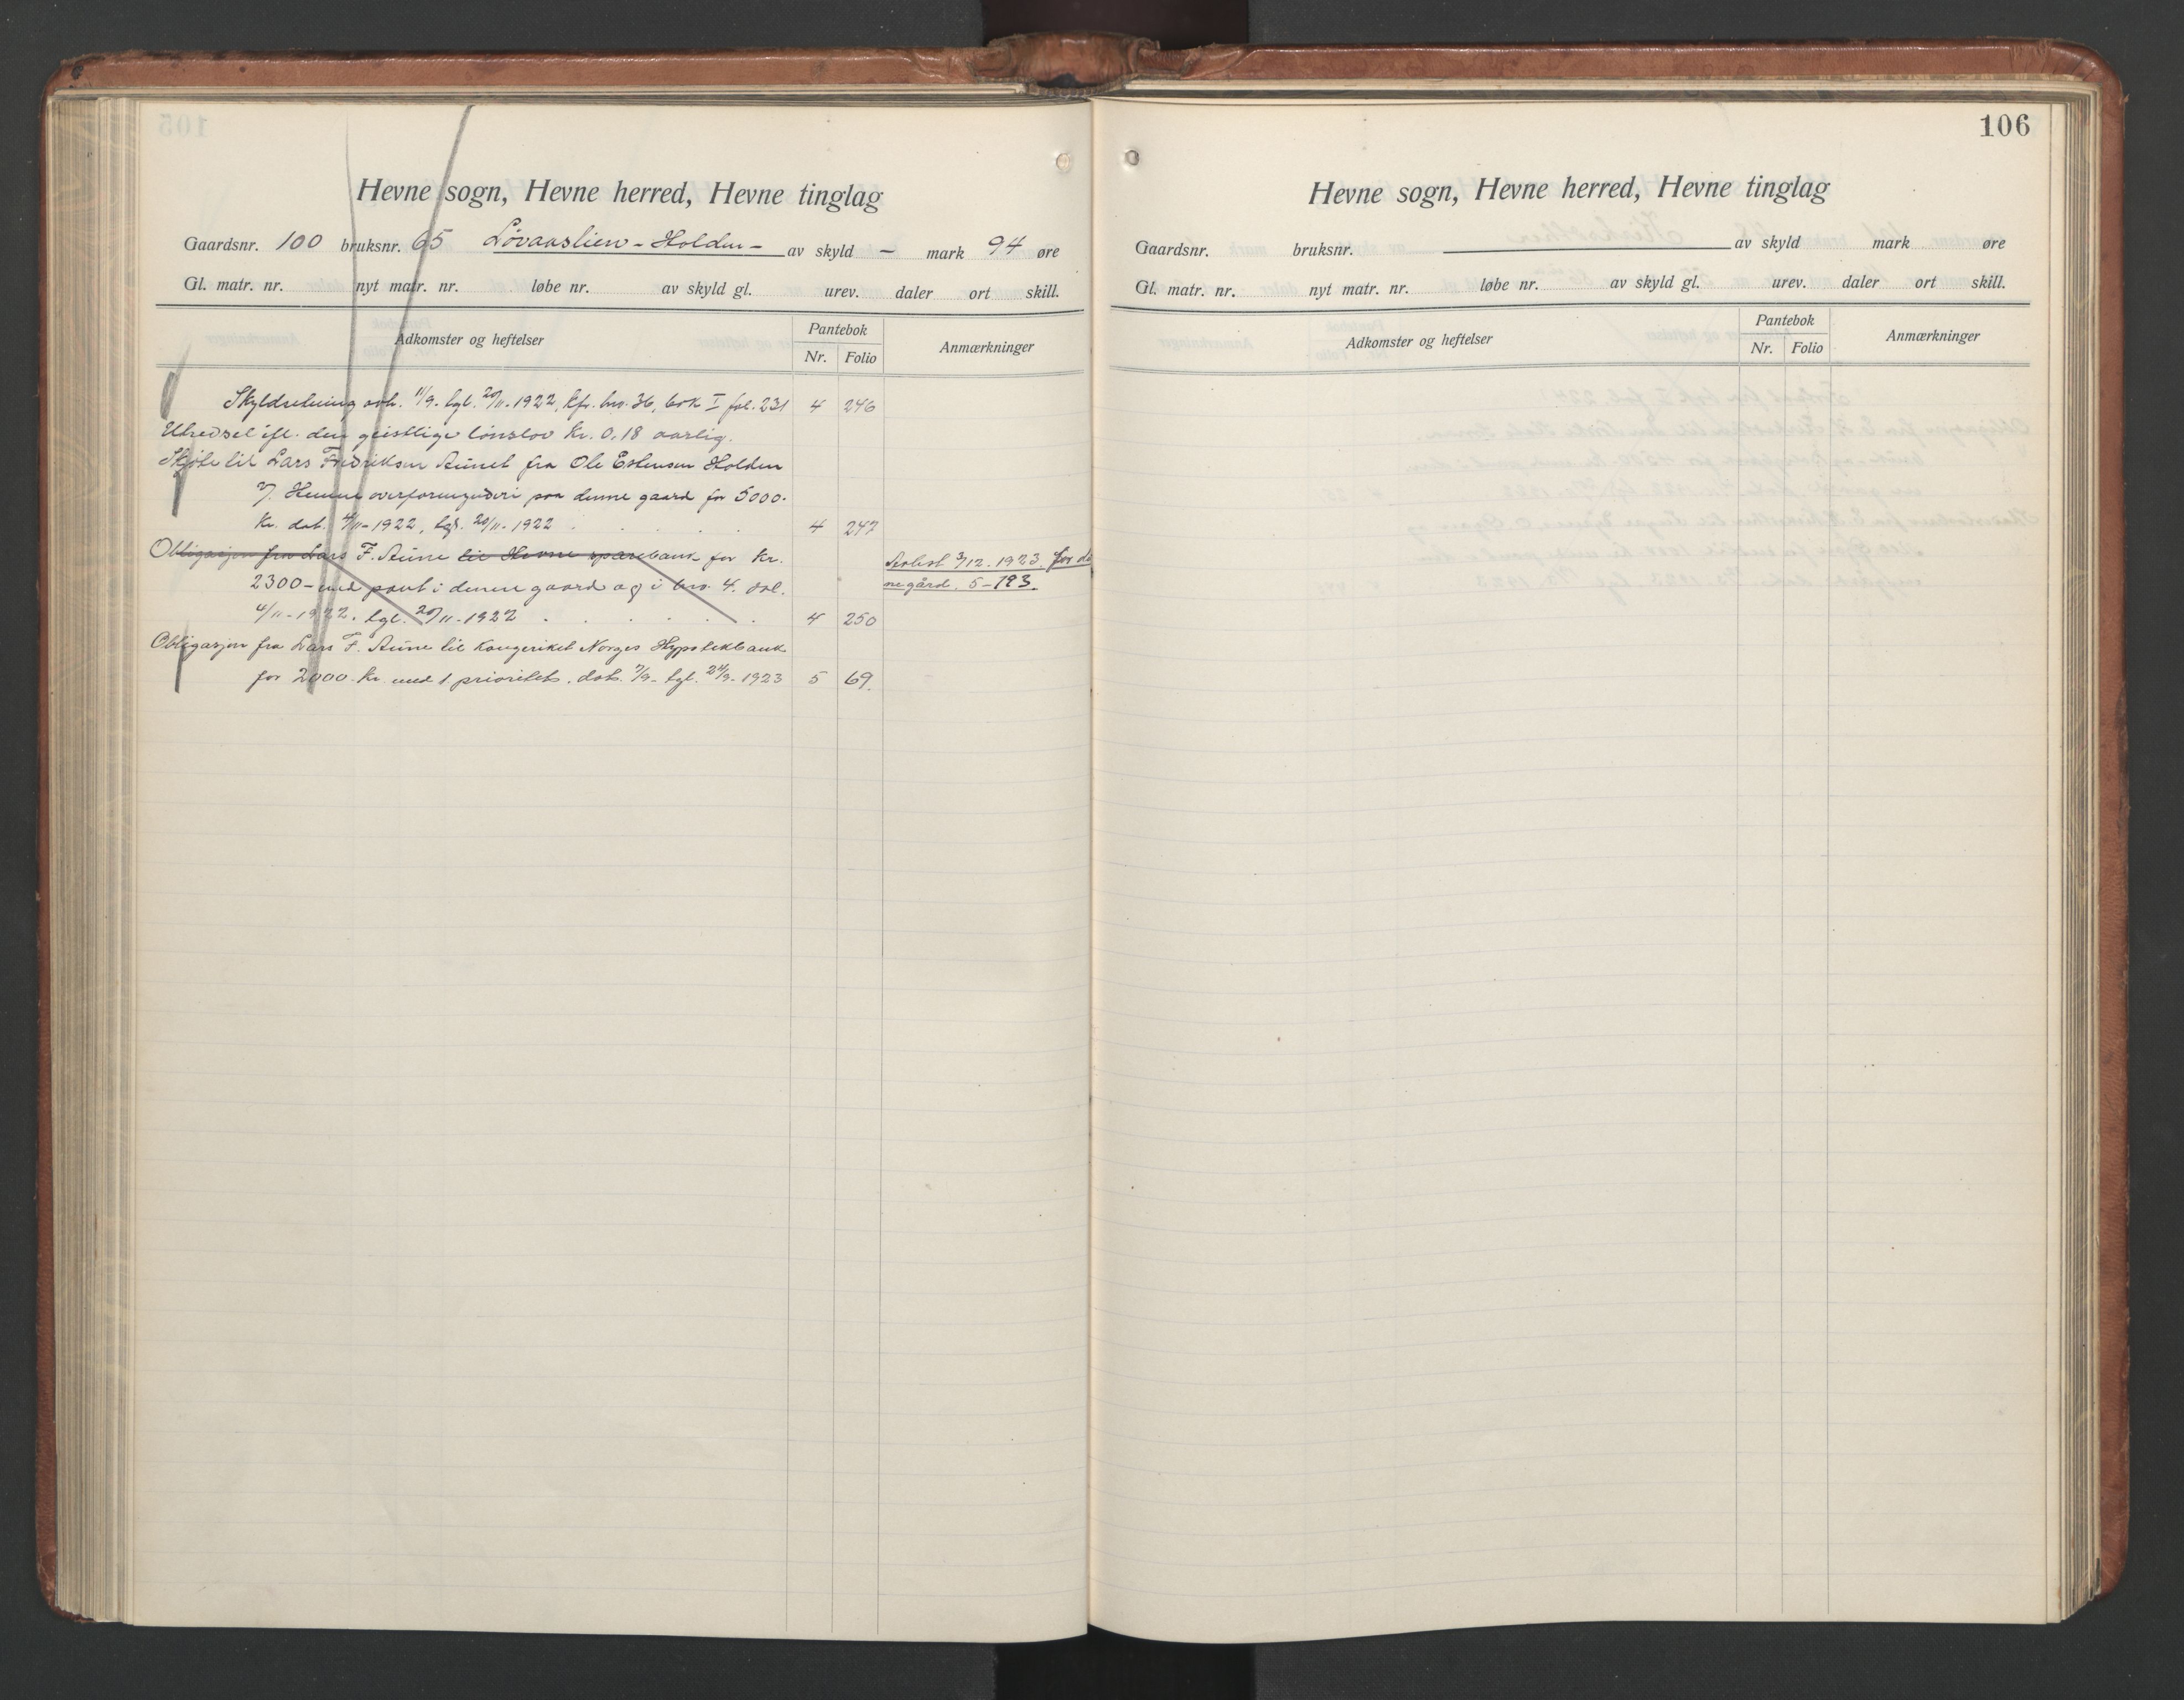 Hevne sogn, Hevne herred, Hevne tinglag
Gaardsnr. 100 bruksnr. 65 Løvaaslien - Holden - av skyld - mark 94 øre
Gl. matr. nr. nyt matr. nr. løbe nr. av skyld gl. urev. daler ort skill.
Adkomster og heftelser Pantebok Nr. Folio Anmærkninger
Skyldseining avh. 11/9. tgl. 20/11. 1922, kfr. bno. 36, bok I fol. 231 4 246
Utredsel ifl. den geistlige lønslov Kr. 0.18 aarlig.
Skjøte til Lars Fredriksen Aunet fra Ole Estensen Holden
Hemne overformynderi paa denne gaard for 5000.
Kr. dat. 4/11-1922, tgl. 20/11-1922 . . . . 4 247
Obligasjon fra Lars F. Aune til Hevne sparebank for Kr.
2300- med pant i denne gaard og i bno. 4. dat.
4/11-1922. tgl. 20/11-1922 . . . . . 4 250
Avlest 3/12. 1923. for de
ne gård. 5-193.
Obligasjon fra Lars F. Aune til Kongeriket Norges Hypotekbank
for 2000. Kr. med 1 prioritet. dat. 7/9- tgl. 24/9-1923 5 69.
106
Hevne sogn, Hevne herred, Hevne tinglag
Gaardsnr. bruksnr. av skyld mark øre
Gl. matr. nr. nyt matr. nr. løbe nr. av skyld gl. urev. daler ort skill.
Adkomster og heftelser Pantebok Nr. Folio Anmærkninger